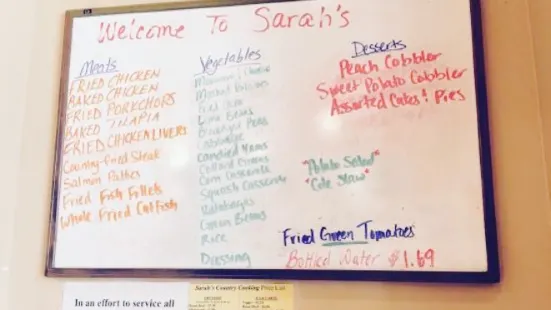 Welcome To Sarah's
Meats
FRIED CHICKEN
BAKED CHICKEN
FRIED PORKCHOPS
BAKED TILAPIA
FRIED CHICKEN LIVERS
Country-fried Steak
Salmon Patties
Fried Fish Fillets
Whole Fried Catfish
Vegetables
Macaroni & Cheese
Mashed Potatoes
Fried Okra
Lima Beans
Blackeye Peas
Cabbage
Candied Yams
Collard Greens
Corn Casserole
Squash Casserole
Rutabagas
Green Beans
Rice
Dressing
Desserts
Peach Cobbler
Sweet Potato Cobbler
Assorted Cakes & Pies
"Potato Salad"
"Cole Slaw"
Fried Green Tomatoes
Bottled Water $1.69
In an effort to service all
Sarah's Country Cooking